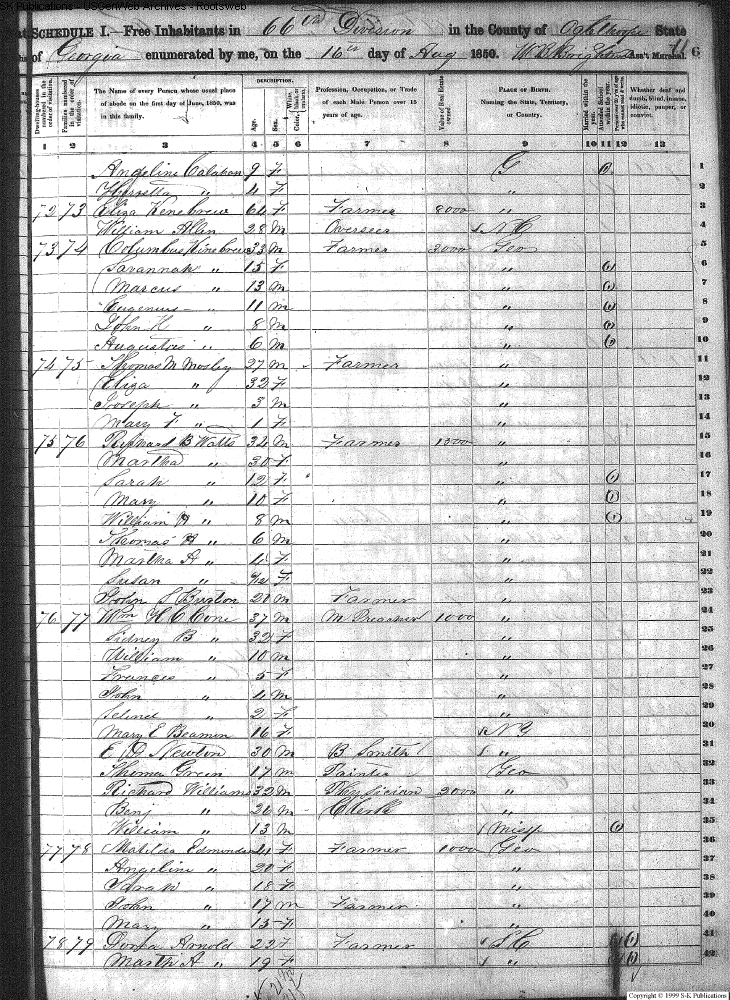 S-K Publications - USGenWeb Archives - Rootsweb
SCHEDULE I.—Free Inhabitants in 66th Division in the County of Oglthorpe State
of Georgia enumerated by me, on the 16th day of Aug 1850. W B Brightwell Ass't Marshal. 6
Dwelling-houses numbered in the order of visitation. Families numbered in the order of visitation. The Name of every Person whose usual place of abode on the first day of June, 1850, was in this family. DESCRIPTION. Age. Sex. Color, White, black, or mulatto. Profession, Occupation, or Trade of each Male Person over 15 years of age. Value of Real Estate owned. PLACE OF BIRTH. Naming the State, Territory, or Country. Married within the year. Attended School within the year. Whether deaf and dumb, blind, insane, idiotic, pauper, or convict.
1 2 3 4 5 6 7 8 9 10 11 12 13
Angeline Calahan 9 F G (1) 1
" 4 F " 2
72 73 Eliza Kenebrew 64 F Farmer 8000 " 3
William Allan 28 M Overseer N C 4
73 74 Columbus Kinebrew 33 M Farmer 3000 Geo 5
Savannah " 15 F " (1) 6
Marcus " 13 M " (1) 7
Eugenius " 11 M " (1) 8
John H " 8 M " (1) 9
Augustus " 6 M " (1) 10
74 75 Thomas M Mosley 27 M Farmer " 11
Eliza " 32 F " 12
Joseph " 3 M " 13
Mary F " 1 F " 14
75 76 Richard B Watts 34 M Farmer 1300 " 15
Martha " 30 F " 16
Sarah " 12 F " (1) 17
Mary " 10 F " (1) 18
William H " 8 M " (1) 19
Thomas H " 6 M " 20
Martha A " 4 F " 21
Susan " F " 22
John S Burton 28 M Farmer " 23
76 77 Wm H C Cone 37 M M Preacher 1000 " 24
Sidney B " 32 F " 25
William " 10 M " 26
Frances " 5 F " 27
John " 4 M " 28
" 2 F " 29
Mary E Beamon 16 F N Y 20
E D Newton 30 M B Smith " 31
Thomas Green 17 M Painter Geo 32
Richard Williams 32 M Physician 2000 " 33
Benj " 26 M Clerk " 34
William " 13 M Missp (1) 35
77 78 Matilda Edmondson F Farmer 1000 Geo 36
Angeline " 20 F " 37
Sarah " 18 F " 38
John " 17 M Farmer " 39
Mary " 15 F " 40
78 79 Arnold 22 F Farmer S C 41
Marth A " 19 F " 42
Copyright © 1999 S-K Publications